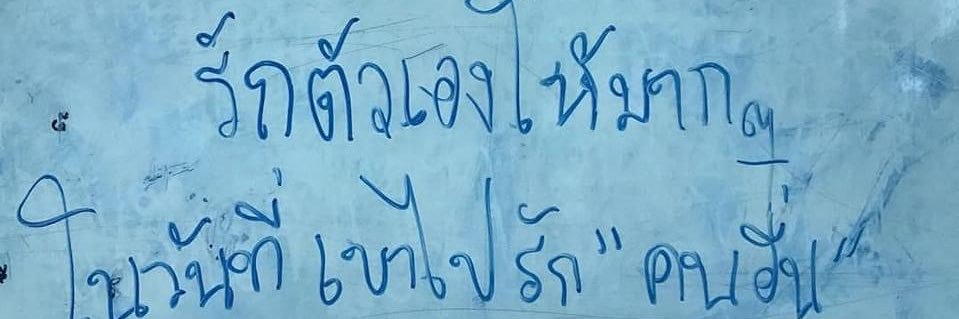 รักตัวเองให้มากๆ
ในวันที่ เขาไปรัก "คนอื่น"